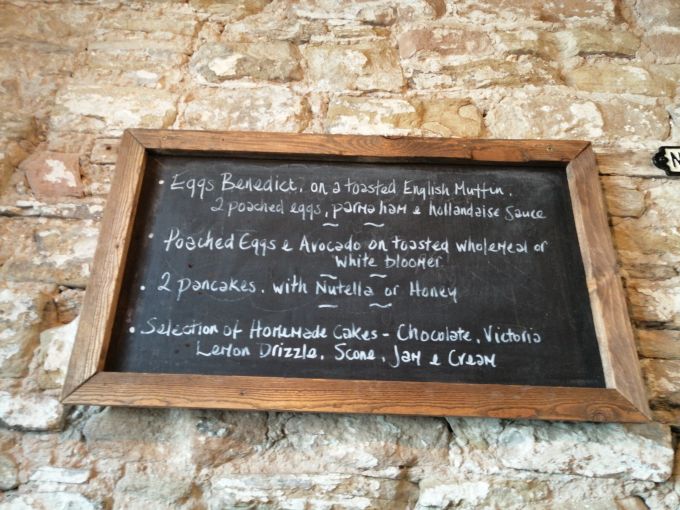 • Eggs Benedict, on a toasted English Muffin.
2 poached eggs, parma ham e hollandaise sauce
• Poached Eggs e Avocado on toasted wholemeal or
white bloomer
• 2 pancakes. with Nutella or Honey
• Selection of Homemade Cakes - Chocolate, Victoria
Lemon Drizzle, Scone, Jam e Cream
N